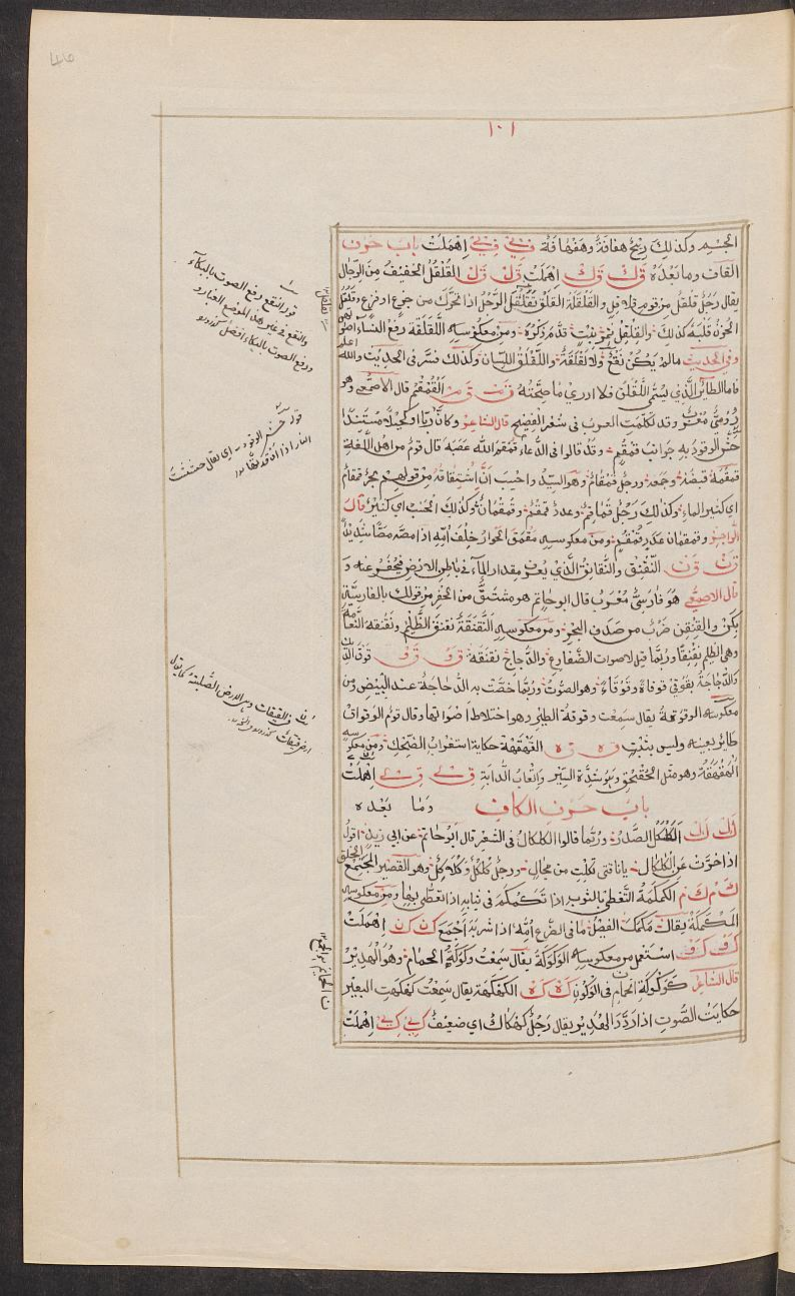 ١٠١
الجسم وكذلك ريح هفافة وهفهافة ف ي ف ي اهملت باب حرف
القاف وما بعده ق ك ق ك اهملت ق ل ق ل القلقل الخفيف من الرجال
يقال رجل قلقل من قوم قلاقل والقلقلة القلق تقلقل الرجل اذا تحرك من جزع او فزع وقلقل
الحزن قلبه كذلك والقلقل نبت قد مر ذكره ومن معكوسه اللقلقة رفع النساء اصواتهن
وفي الحديث مالم يكن نقع ولا لقلقة واللقلق اللسان وكذلك فسر في الحديث والله اعلم
فاما الطائر الذي يسمى اللقلق فلا ادري ما صحته ق م ق م القمقم قال الاصمعي وهو
رومي معرب وقد تكلمت العرب في شعر الفصيح قال الشاعر وكأن ربا او كحيلا
حش الوقود به جوانب قمقم وقد قالوا في الدعاء قمقم الله عصبه قال قوم من اهل اللغة
قمقمه قبضه وجمعه ورجل قمقام وهو السيد واحسب ان اشتقاقه من قولهم بحر قمقام
اي كثير الماء وكذلك رجل قماقم وعدد قمقم وقمقمان وكذلك الحسب اي كثير قال
الراجز وقمقمان عدد قمقم ومن معكوسه مقمق الحوار خلف امه اذا مصه مصا شديدا
ق ن ق ن النقنق والقناقن الذي يعرف مقدار الماء في باطن الارض فيحفر عنه
قال الاصمعي هو فارسي معرب قال ابو حاتم هو مشتق من الحفر من قولك بالفارسية
بكن والقنقن ضرب من صدف البحر ومن معكوسه النقنقة نقنق الظليم ونقنقة النعامة
وهي الظليم نقنقا وربما قيل لاصوات الضفادع والدجاج نقنقة ق و ق و قوق الديك
والدجاجة يقوقي قوقاة وقوقاء وهو الصوت وربما خصت به الدجاجة عند البيض ومن
معكوسه الوقوقة يقال سمعت وقوقة الطير وهو اختلاط اصواتها وقال قوم الوقواق
طائر بعينه وليس بثبت ق ه ق ه القهقهة حكاية استغراب الضحك ومن معكوسه
الهقهقة وهو مثل الحقحقة وهو شدة السير واتعاب الدابة ق ي ق ي اهملت
باب حرف الكاف وما بعده
ك ل ك ل الكلكل الصدر وربما قالوا الكلكال في الشعر قال ابو حاتم عن ابي زيد اقول
اذ خرت على الكلكال يا ناقتي ما جلت من مجال ورجل كلكل وكلاكل وهو القصير المجتمع الخلق
ك م ك م الكمكمة التغطي بالثوب اذا تكمكم في ثيابه اذا تغطى بها ومن معكوسه
المكمكة يقال مكمك الفصيل ما في الضرع امه اذا شربه اجمع ك ن ك ن اهملت
ك و ك و استعمل من معكوسه الوكوكة يقال سمعت وكوكة الحمام وهو الهدير
قال الشاعر كوكوكة الحمام في الوكون ك ه ك ه الكهكهة يقال سمعت كهكهة البعير
حكايت الصوت اذا ردد الهدير ويقال رجل كهكاه اي ضعيف ك ي ك ي اهملت
قوله النقع رفع الصوت بالبكاء
والنقع في غير هذا الموضع الغبار و
ورفع الصوت بالبكاء
قوله حش الوقود اي يقال حششت
النار اذا اوقدتها